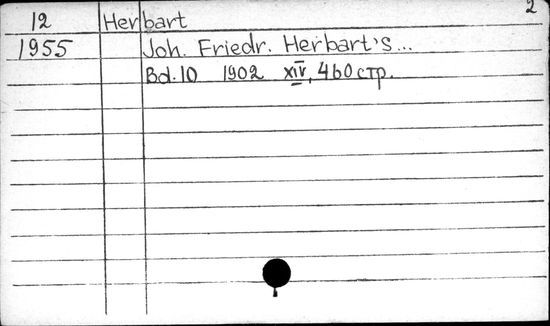 2
12 Herbart
1955 Joh. Friedr. Herbart's...
Bd. 10 1902 XIV, 460 стр.